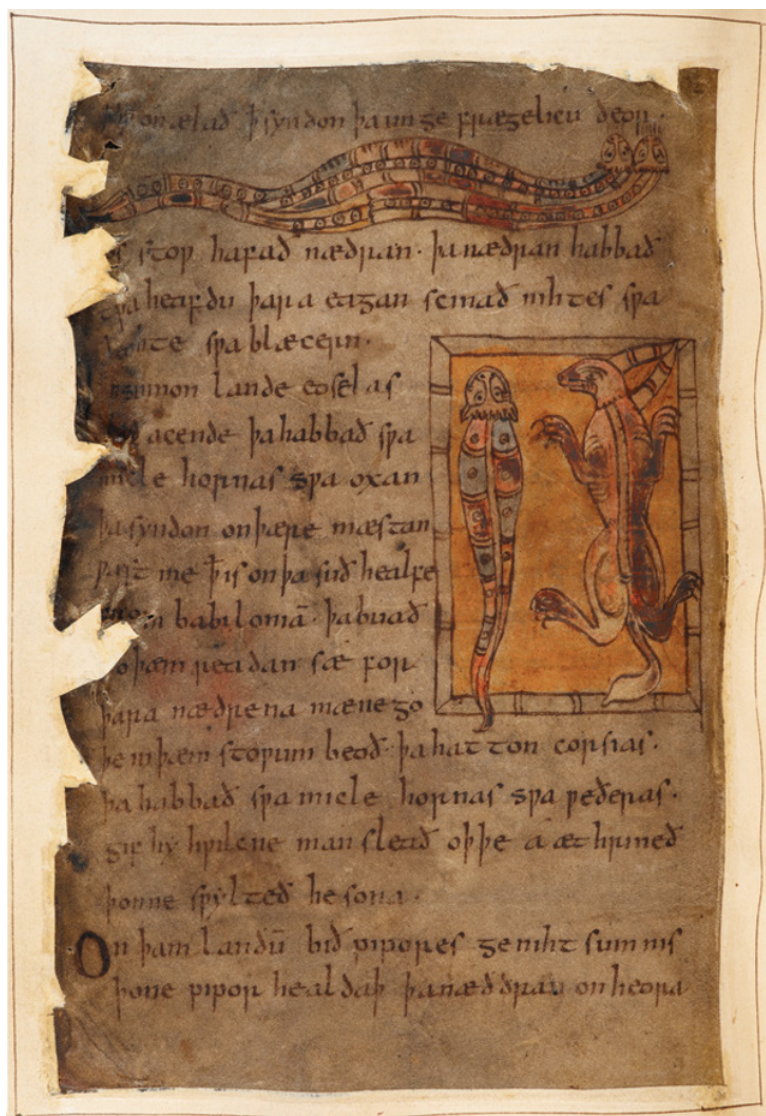 onælað ꝥ syndon þa unge frægelicu deor.
stoƿ hafað nædran · þa nædran habbað
tƿa heafdu þara eagan scinað nihtes sƿa
sƿa blæcern ·
sumon lande eoselas
acende þa habbað sƿa
micle hornas sƿa oxan
þa syndon on þære mæstan
ꝥ is on þa suð healfe
from babiloniā · þa buað
to þæm readan sæ for
þara nædrena mænego
þe in þæm stoƿum beoð · þa hatton corsias ·
þa habbað sƿa micle hornas sƿa ƿeðeras ·
gif hy hƿilcne man sleað oþþe a æt hrineð
þonne sƿylteð he sona ·
On þam landū bið pipores geniht sumnis
þone pipor healdaþ þa næddran on heora